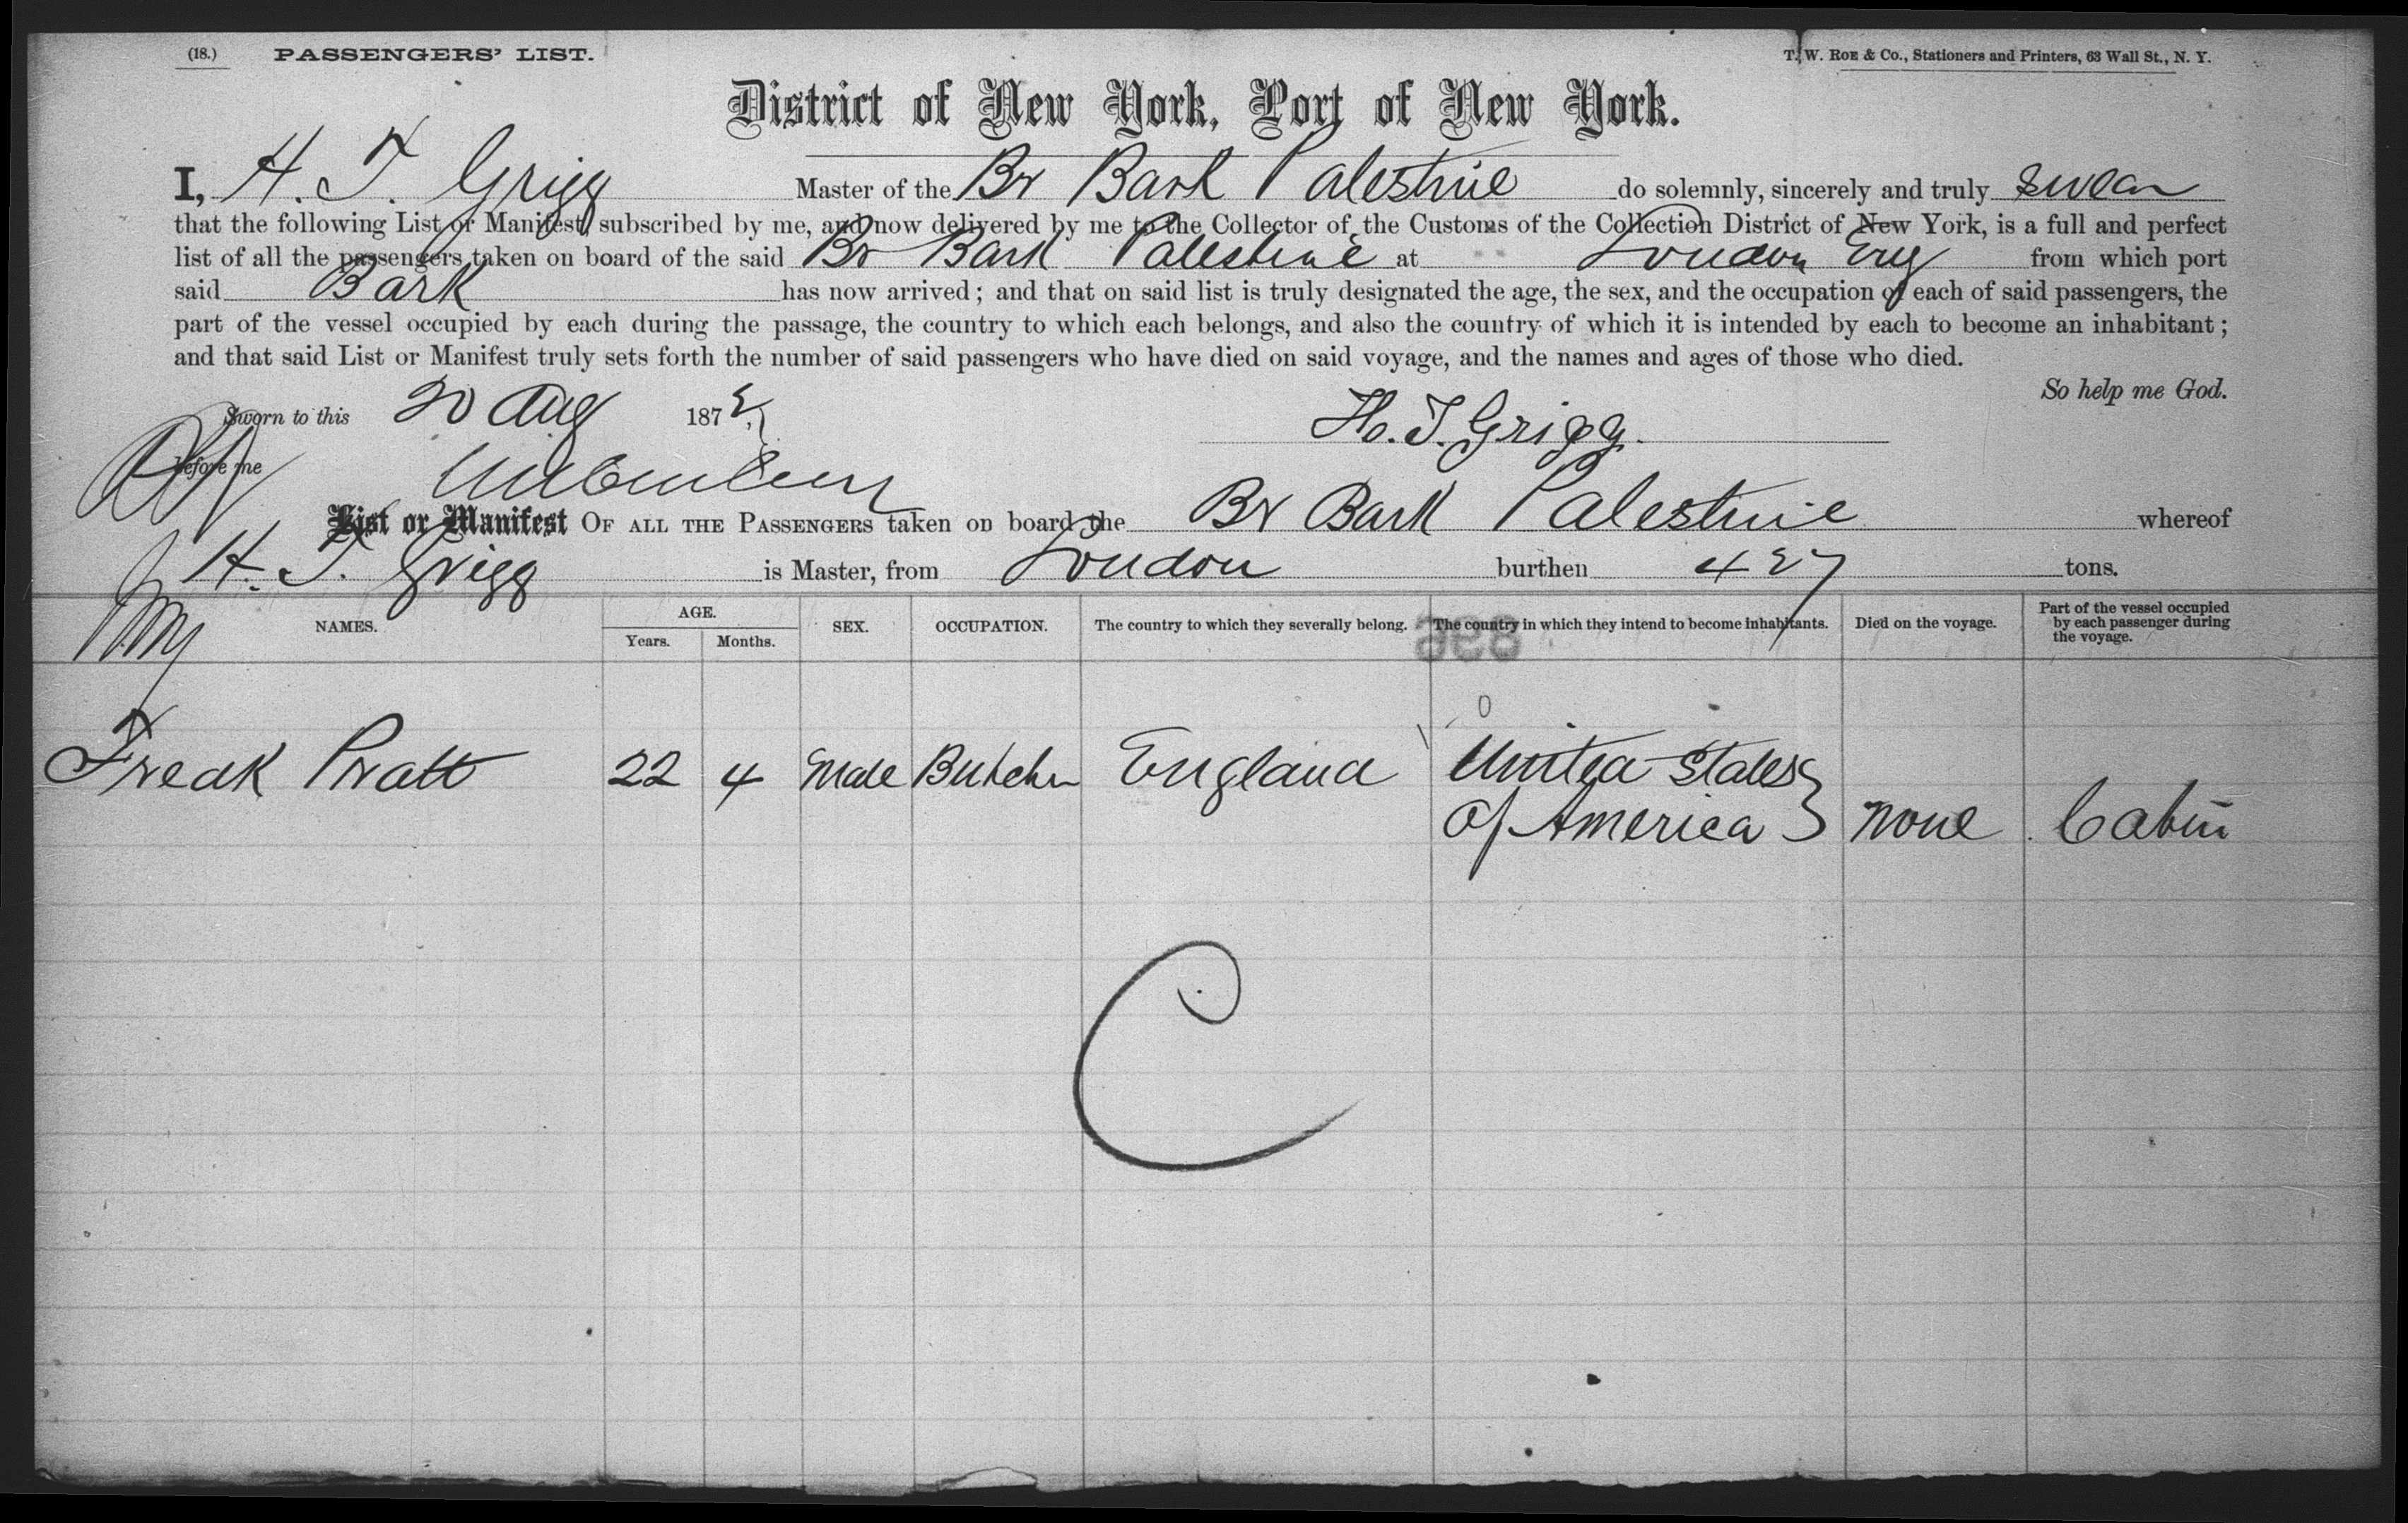 (18.) PASSENGERS' LIST.
T. W. ROE & Co., Stationers and Printers, 63 Wall St., N. Y.
District of New York, Port of New York.
I, H. T. Grigg Master of the Br Bark Palestine do solemnly, sincerely and truly swear
that the following List or Manifest, subscribed by me, and now delivered by me to the Collector of the Customs of the Collection District of New York, is a full and perfect
list of all the passengers taken on board of the said Br Bark Palestine at London Eng from which port
said Bark has now arrived; and that on said list is truly designated the age, the sex, and the occupation of each of said passengers, the
part of the vessel occupied by each during the passage, the country to which each belongs, and also the country of which it is intended by each to become an inhabitant;
and that said List or Manifest truly sets forth the number of said passengers who have died on said voyage, and the names and ages of those who died.
So help me God.
Sworn to this 20 Aug 1872,
H. T. Grigg.
before me
List or Manifest OF ALL THE PASSENGERS taken on board the Br Bark Palestine whereof
H. T. Grigg is Master, from London burthen 427 tons.
NAMES. AGE. Years. Months. SEX. OCCUPATION. The country to which they severally belong. The country in which they intend to become inhabitants. Died on the voyage. Part of the vessel occupied by each passenger during the voyage.
Fredk Pratt 22 4 Male Butcher England United States
of America none Cabin
C